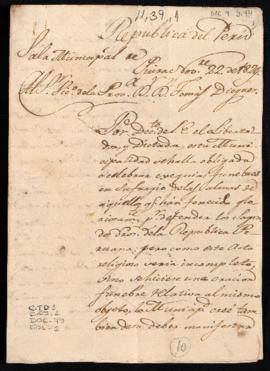 11,39,1
Republica del Perú
Sala Municipal de
Piura Nov.re 22 de 1824
Al S.r Vic.o de la Prov.a D. D. Tomas Dieguez
Por Dec.to de S.E. el Liberta-
dor, y Dictador, esta Muni-
cipalidad se halla obligada
a celebrar exequias funebres
en sufragio de las Almas de
aquellos q.e han fenecido glo-
p.r defender los sagra-
dos dros. de la Republica Pe-
ruana; pero como este Acto
religioso seria incompleto,
sino se hiciere una oracion
funebre relativa al mismo
objeto, la Munic.d creé tam-
bien de su deber manifestar
10